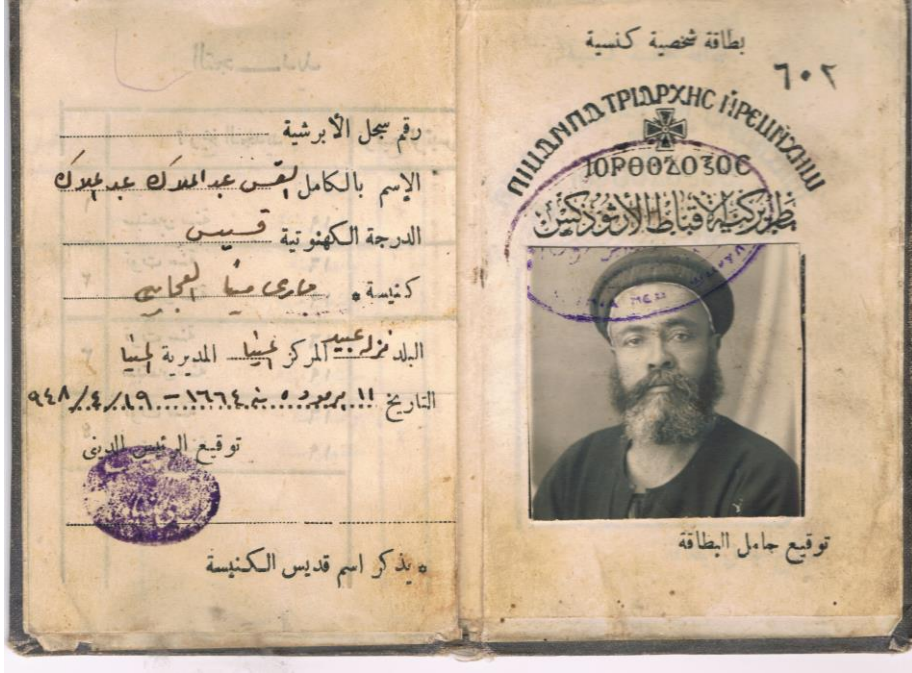 بطاقة شخصية كنسية
٦٠٢
ⲠⲒⲠⲀⲠⲀ ⲦⲢⲒⲀⲢⲬⲎⲤ ⲚⲢⲈⲘⲚⲬⲎⲘⲒ
ⲒⲞⲢⲐⲞⲆⲞⲜⲞⲤ
بطريركية الأقباط الأرثوذكس
توقيع حامل البطاقة
رقم سجل الأبرشية
الإسم بالكامل القس عبد الملاك عبد الملاك
الدرجة الكهنوتية قسيس
كنيسة * مارى مينا العجايبي
البلد نزلة عبيد المركز المنيا المديرية المنيا
التاريخ ١١ برموده سنة ١٦٦٤ – ١٩/٤/٩٤٨
توقيع الرئيس الدينى
* يذكر اسم قديس الكنيسة